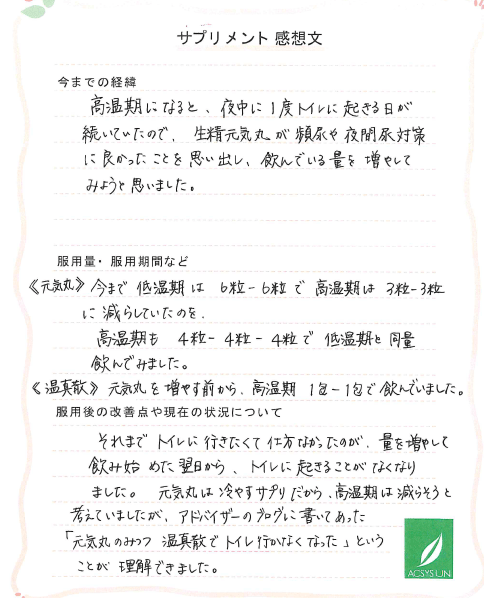 サプリメント 感想文
今までの経緯
高温期になると、夜中に1度トイレに起きる日が
続いていたので、生精元気丸が頻尿や夜間尿対策
に良かったことを思い出し、飲んでいる量を増やして
みようと思いました。
服用量・服用期間など
《元気丸》今まで低温期は 6粒-6粒で 高温期は 3粒-3粒
に減らしていたのを、
高温期も 4粒-4粒-4粒で 低温期と同量
飲んでみました。
《温真散》元気丸を増やす前から、高温期 1包-1包で飲んでいました。
服用後の改善点や現在の状況について
それまでトイレに行きたくて仕方なかったのが、量を増やして
飲み始めた翌日から、トイレに起きることがなくなり
ました。 元気丸は冷やすサプリだから、高温期は減らそうと
考えていましたが、アドバイザーのブログに書いてあった
「元気丸のみつつ 温真散でトイレ行かなくなった」という
ことが理解できました。
ACSYS JIN